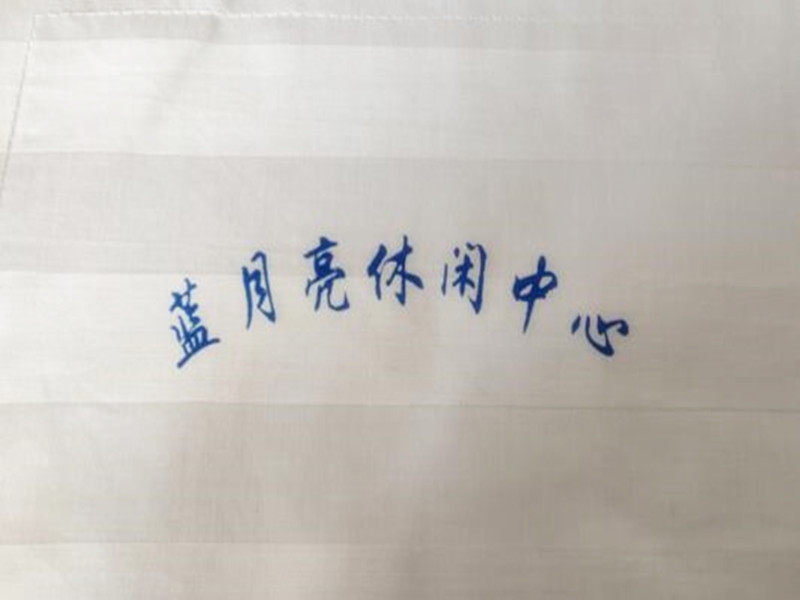 蓝月亮休闲中心